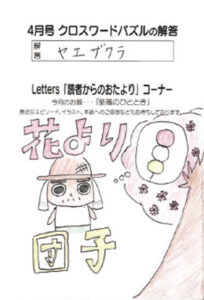 4月号 クロスワードパズルの解答
解答 ヤエザクラ
Letters「読者からのおたより」コーナー
今月のお題・・・「至福のひととき」
身近なエピソード、イラスト、本誌へのご感想などもお待ちしております。
花より
団子